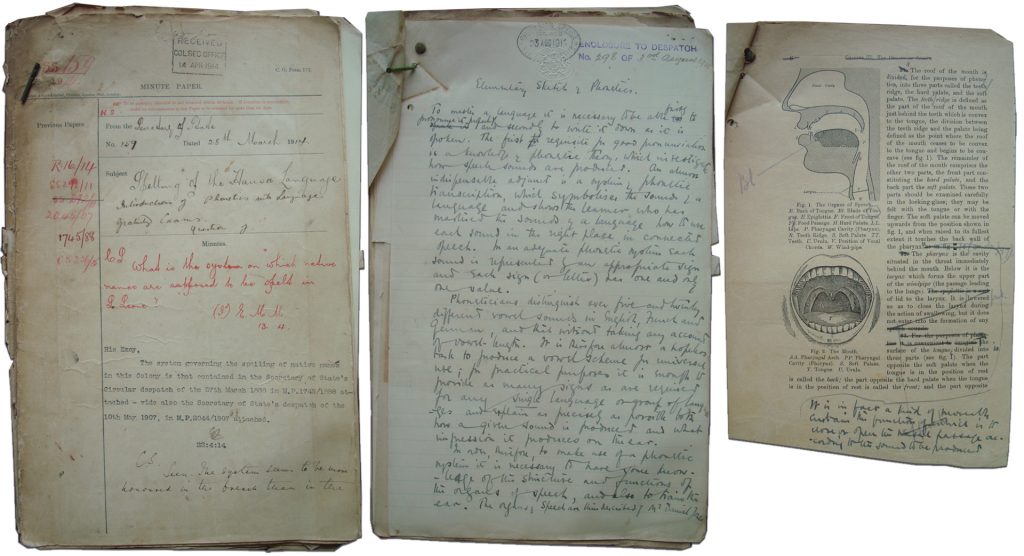 RECEIVED
COLSEC OFFICE
14 APR 1914
C. G. Form 177.
MINUTE PAPER.
Previous Papers
R.16/14
1745/88
From the Secretary of State
No. 159 Dated 25th March 1914.
Subject
Spelling of the Hausa Language
Introduction of Phonetics into Language
Exams.
Minutes.
What is the system on which native
names are supposed to be spelt in
E.M.M.
His Exny.
The system governing the spelling of native names
in this Colony is that contained in the Secretary of State's
Circular despatch of the 27th March 1888 in M.P.1745/1888 at-
tached - vide also the Secretary of State's despatch of the
18th May 1907, in M.P.2044/1907 attached.
22:4:14
C.S.
Seen. The system seems to be more
honoured in the breach than in the
ENCLOSURE TO DESPATCH
No. 298 OF 3rd August
Elementary Sketch of Phonetics.
To master a language it is necessary to be able first to
pronounce it and secondly to write it down as it is
spoken. The first requisite for good pronunciation
is a knowledge of phonetic theory, which investigates
how speech sounds are produced. An almost
indispensable adjunct is a system of phonetic
transcription, which symbolises the sounds of a
language and shows the learner, who has
mastered the sounds of a language how to use
each sound in the right place in connected
speech. In an adequate phonetic system each
sound is represented by an appropriate sign
and each sign (or letter) has one and only
one value.
Phoneticians distinguish over five and twenty
different vowel sounds in English, French and
German, and this without taking any account
of vowel-length. It is therefore almost a hopeless
task to produce a vowel scheme for universal
use; for practical purposes it is enough to
provide as many signs as are required
for any single language or group of langua-
ges and explain as precisely as possible both
how a given sound is produced and what
impression it produces on the ear.
In order, therefore, to make use of a phonetic
system it is necessary to have some know-
ledge of the structure and functions of
the organs of speech, and also to train the
ear. The organs of speech are thus described by Mr Daniel Jones
The roof of the mouth is
divided, for the purposes of phone-
tics, into three parts called the teeth-
ridge, the hard palate, and the soft
palate. The teeth-ridge is defined as
the part of the roof of the mouth
just behind the teeth which is convex
to the tongue, the division between
the teeth ridge and the palate being
defined as the point where the roof
of the mouth ceases to be convex
to the tongue and begins to be con-
cave (see fig. 1). The remainder of
the roof of the mouth comprises the
other two parts, the front part con-
stituting the hard palate, and the
back part the soft palate. These two
parts should be examined carefully
in the looking-glass; they may be
felt with the tongue or with the
finger. The soft palate can be moved
upwards from the position shown in
fig. 1, and when raised to its fullest
extent it touches the back wall of
the pharynx
Fig. 1. The Organs of Speech.
The pharynx is the cavity
situated in the throat immediately
behind the mouth. Below it is the
larynx which forms the upper part
of the windpipe (the passage leading
to the lungs). The epiglottis is a sort
of lid to the larynx. It is lowered
so as to close the larynx during
the action of swallowing, but it does
not enter into the formation of any
speech sounds.
For the purposes of phone-
tics it is convenient to imagine the
surface of the tongue divided into
three parts (see fig. 1). The part
opposite the soft palate when the
tongue is in the position of rest
is called the back; the part opposite the hard palate when the tongue
is in the position of rest is called the front; and the part opposite
Fig. 2. The Mouth.
AA Pharyngal Arch. PP Pharyngal
Cavity (Pharynx). S. Soft Palate.
T. Tongue. U. Uvula.
It is in fact a kind of movable
curtain the function of which is to
close or open the passage ac-
cording to the sound to be produced